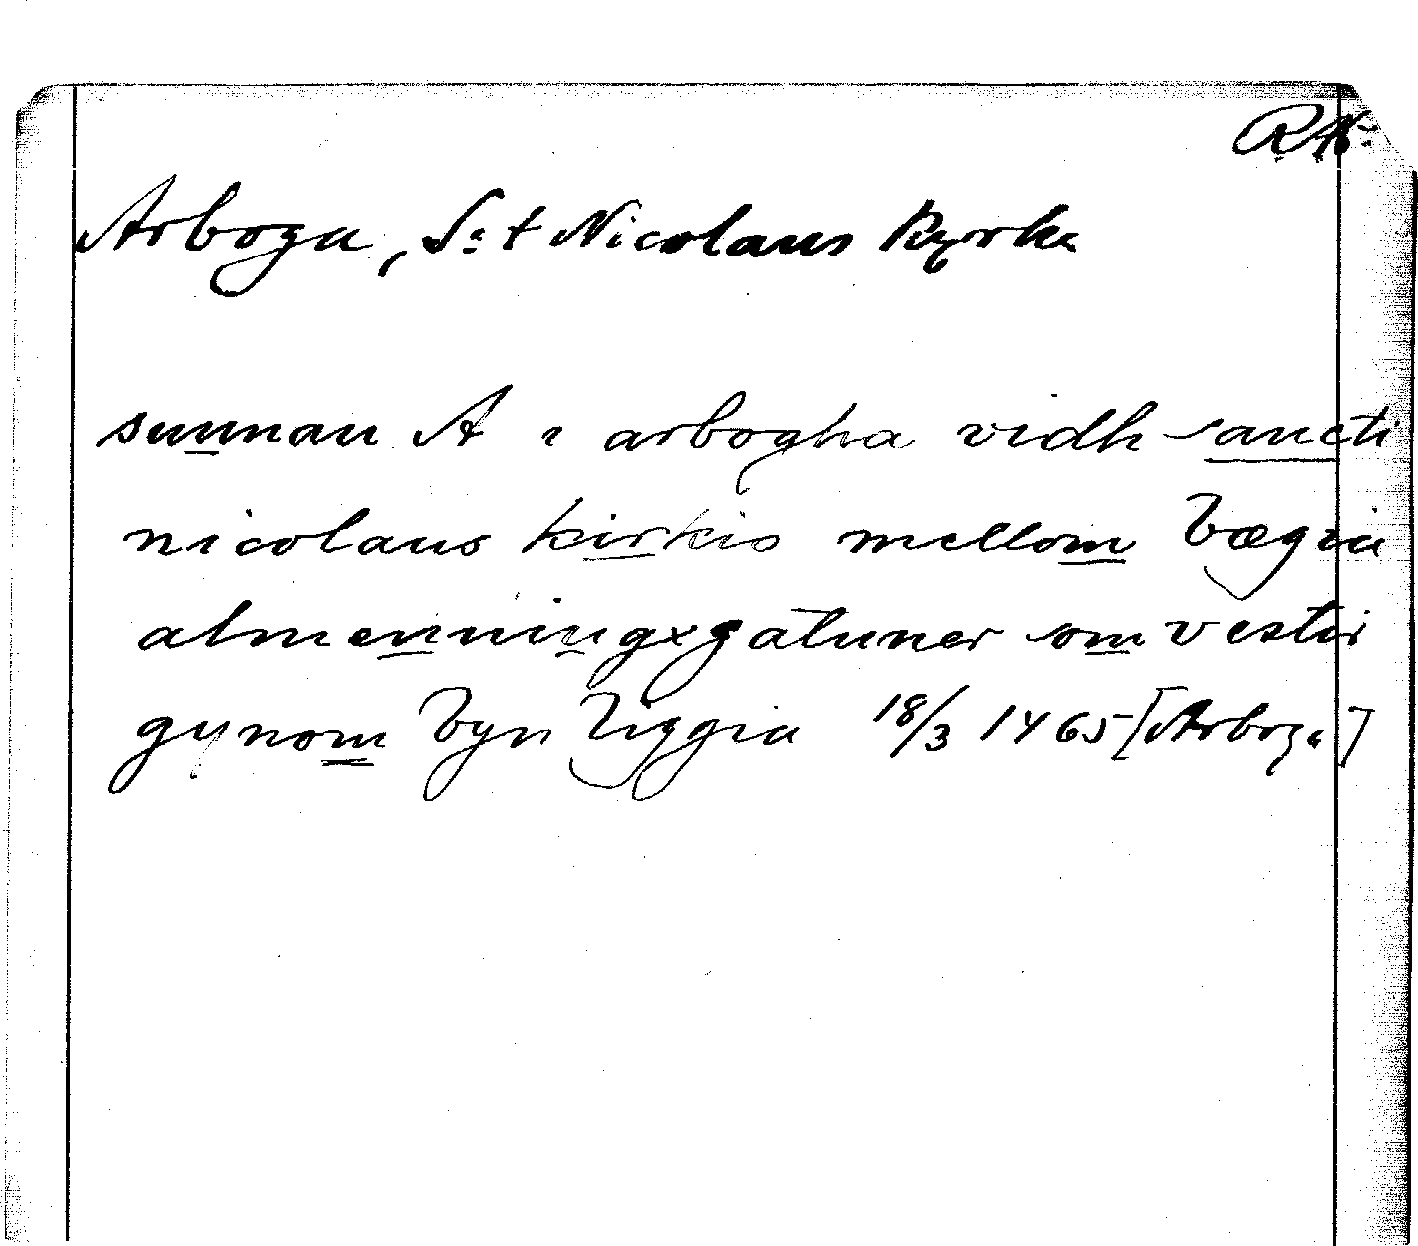 RAp.
Arboga, S:t Nicolaus Kyrka
sunnan A i arbogha vidh sancti
nicolaus kirkio mellom bægia
almenningxgatuner som vestir
gynom byn liggia 18/3 1465 [Arboga]